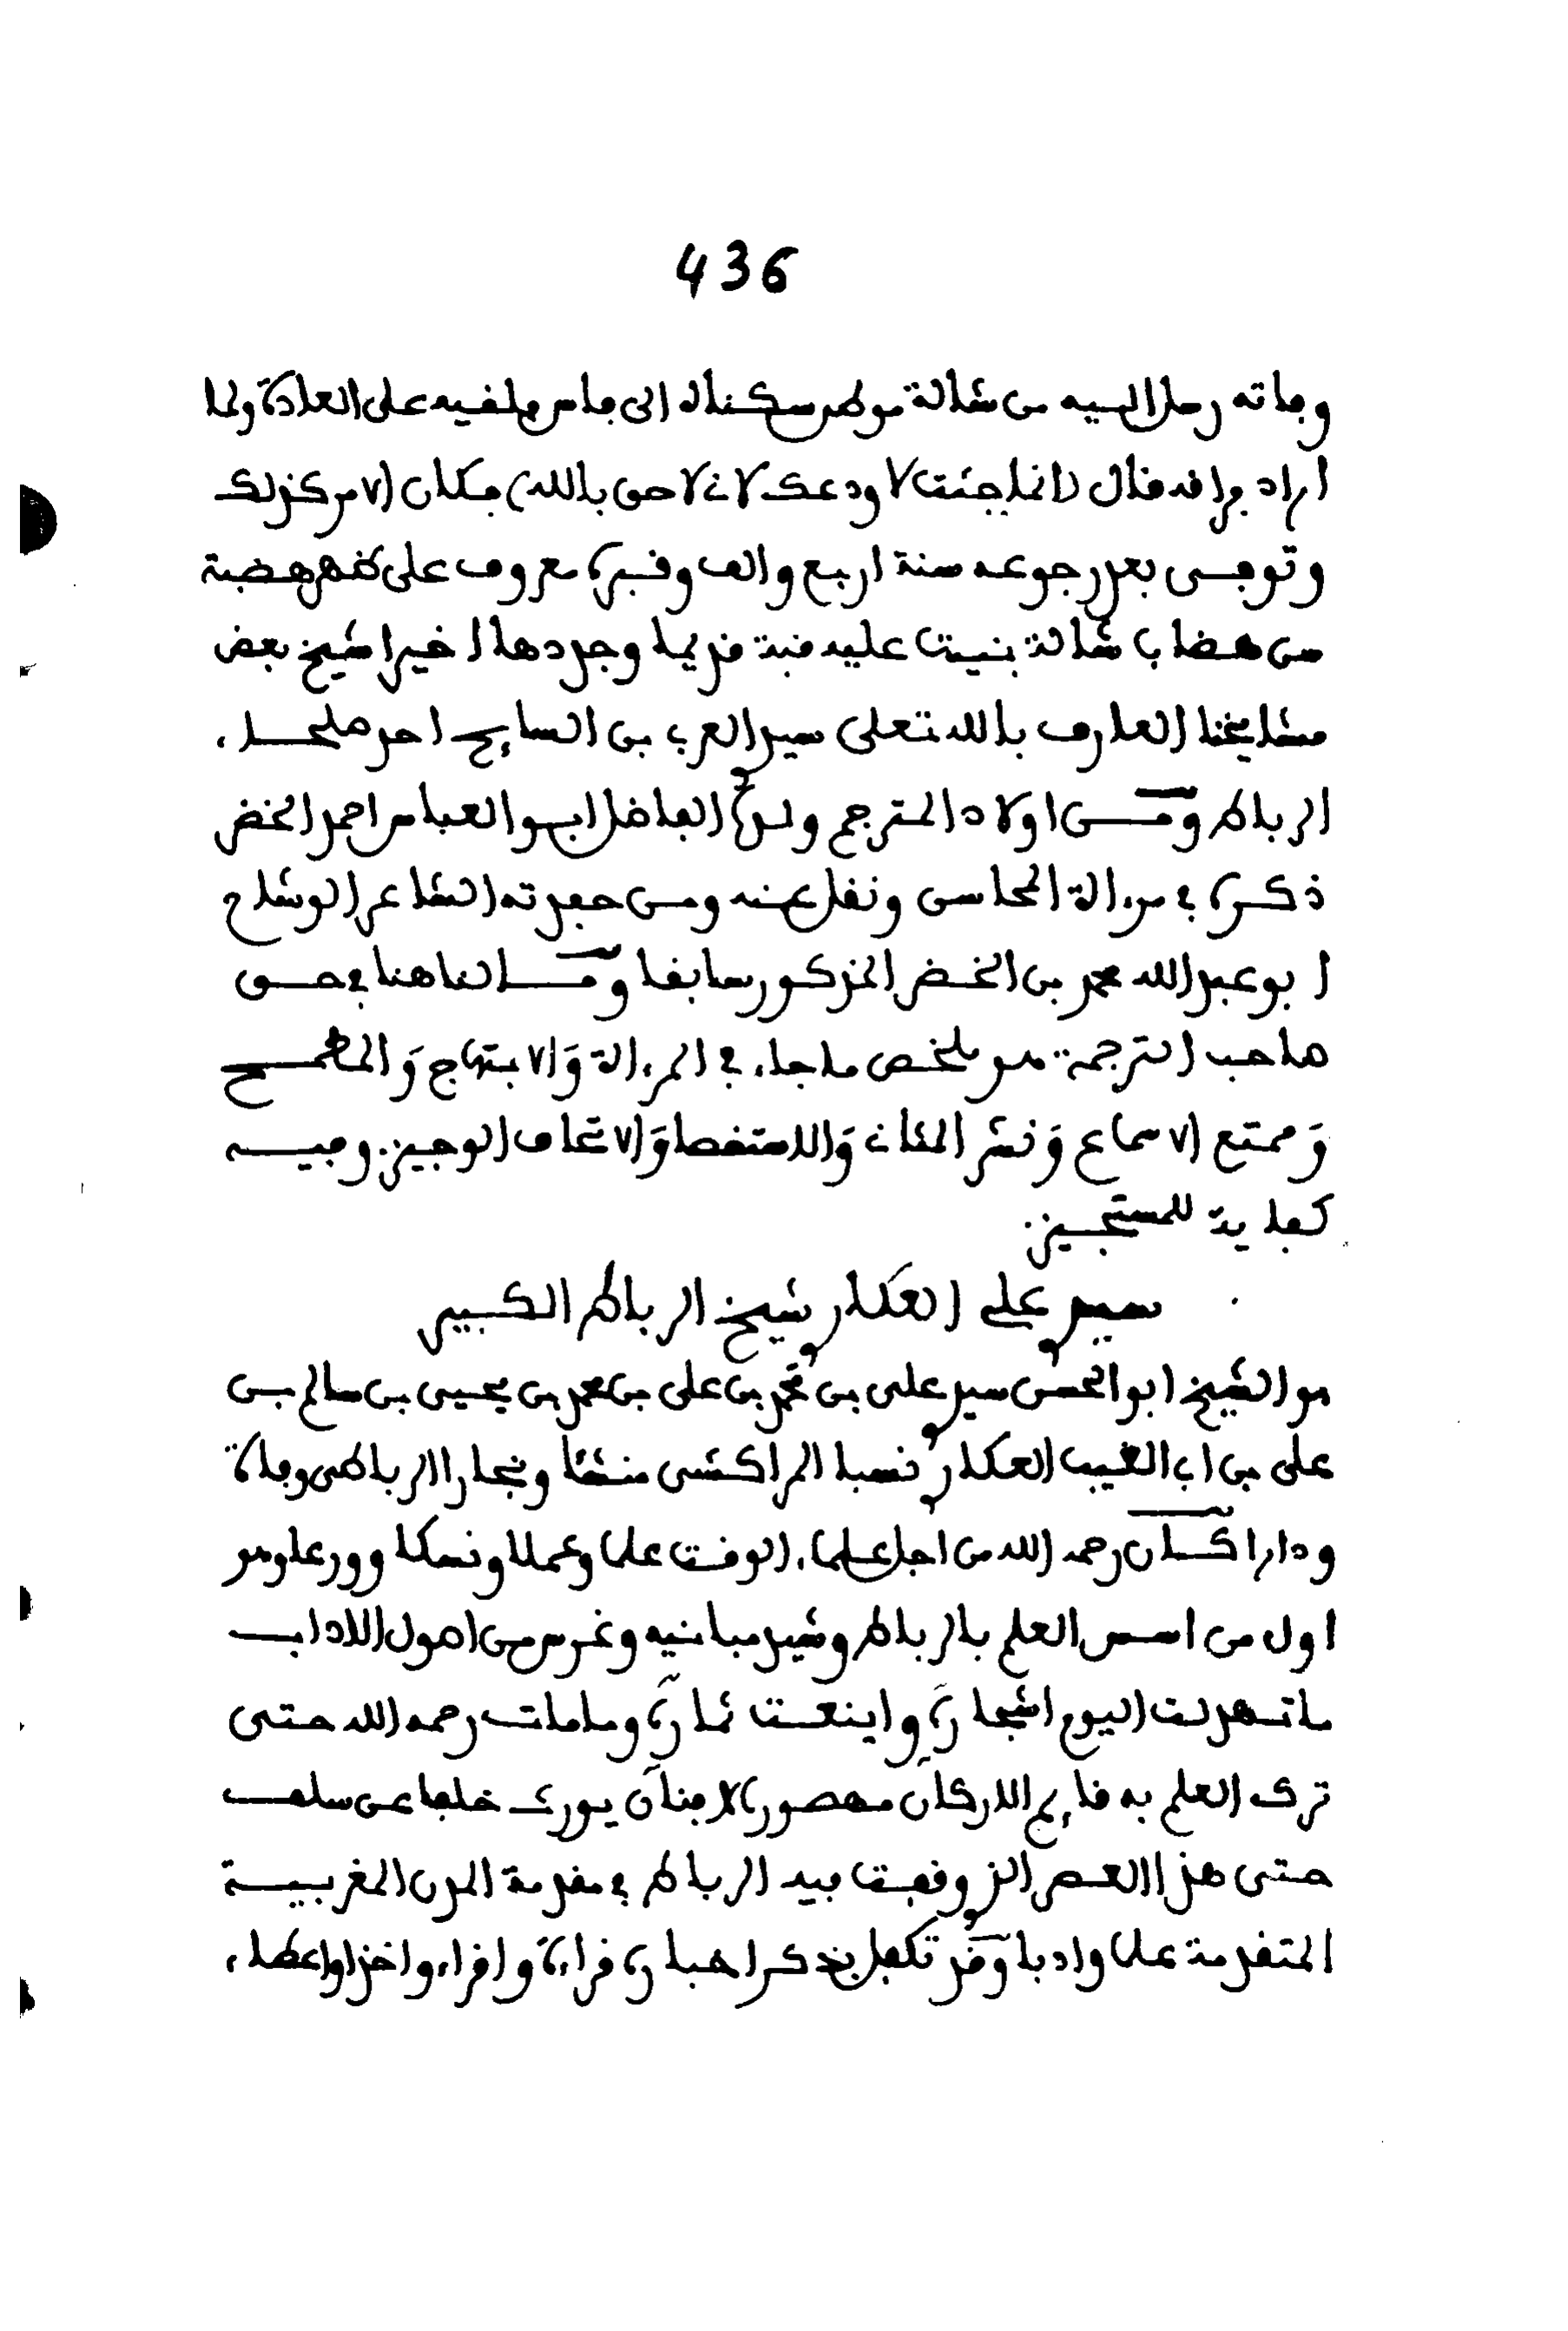 436
وفاته رحل اليه من شالة موطن سكناه الى فاس فلقيه على العادة ولما
اراد فراقه قال انما جئت لاودعك لاني لاحق بالله فكان الامر كذلك
وتوفي بعد رجوعه سنة اربع والف وقبره معروف على ظهر هضبة
من هضاب شالة بنيت عليه قبة قديما وجددها اخيرا شيخ بعض
مشايخنا العارف بالله تعلى سيدي العربي بن السايح احد صلحاء
الرباط ومن اولاد المترجم ولده الفاضل ابو العباس احمد الخضر
ذكره في مرءاة المحاسن ونقل عنه ومن حفدته الشاعر الوشاح
ابو عبد الله محمد بن الخضر المذكور سابقا وما لنا هنا في حق
صاحب الترجمة هو ملخص ما جاء في المرءاة والابتهاج والمطمح
وممتع الاسماع ونشر المثاني والاستقصا والاتحاف الوجيز وفيه
كفاية للمستجيز
سيدي علي العكاري شيخ الرباط الكبير
هو الشيخ ابو الحسن سيدي على بن محمد بن على بن محمد بن يحيى بن سالم بن
على بن ابي الغيب العكاري نسبا المراكشي منشئا ونجارا الرباطي وفاة
ودارا كان رحمه الله من اجل علماء الوقت علما وعملا ونسكا وورعا وهو
اول من اسس العلم بالرباط وشيد مبانيه وغرس من اصول الاداب
ما تهدلت اليوم اشجاره واينعت ثماره وما مات رحمه الله حتى
ترك العلم به قايم الاركان مهصور الافنان يورث خلفا عن سلف
حتى هذا العصر الذي وقفت فيه الرباط في مقدمة المدن المغربية
المتقدمة علما وادبا وقد تكفل بذكر اخباره قراءة واقراء واخذا واعطاء